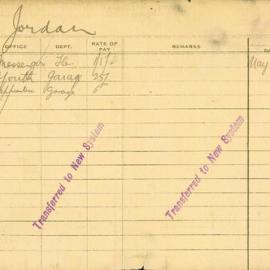 Jordan
OFFICE DEPT. RATE OF PAY REMARKS
Messenger May
Youth Garage 25/-
Apprentice Garage
Transferred to New System
Transferred to New System